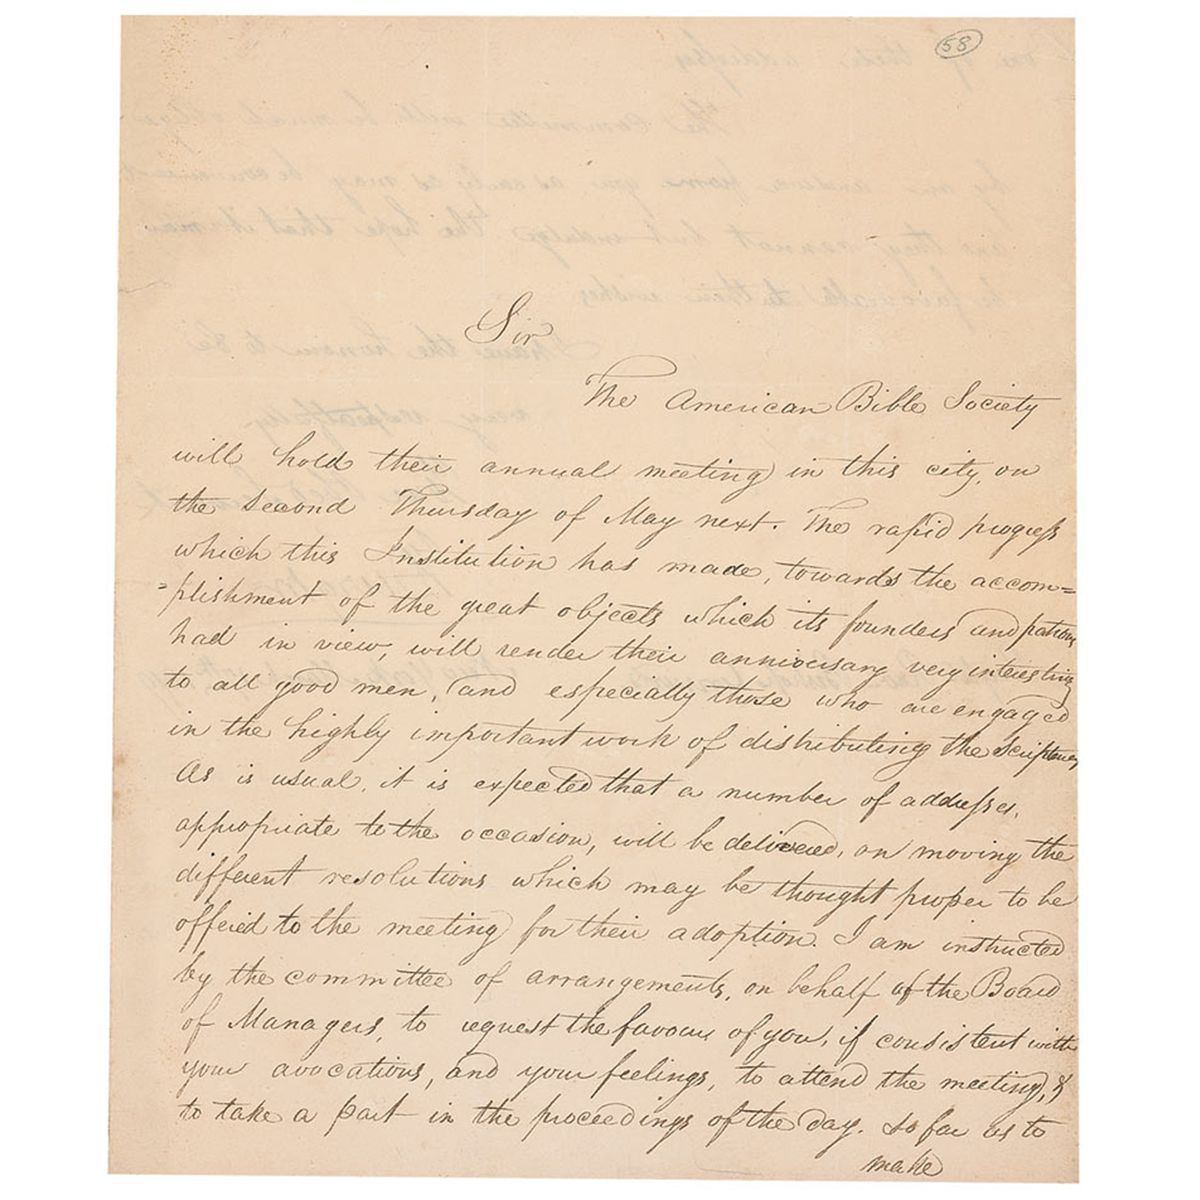 58
Sir
The American Bible Society
will hold their annual meeting in this city, on
the second Thursday of May next. The rapid progress
which this Institution has made, towards the accom=
=plishment of the great objects which its founders and patrons
had in view, will render their anniversary very interesting
to all good men, and especially those who are engaged
in the highly important work of distributing the Scriptures
As is usual, it is expected that a number of addresses,
appropriate to the occasion, will be delivered, on moving the
different resolutions which may be thought proper to be
offered to the meeting for their adoption. I am instructed
by the committee of arrangements, on behalf of the Board
of Managers, to request the favour of you, if consistent with
your avocations, and your feelings, to attend the meeting, &
to take a part in the proceedings of the day. so far as to
make